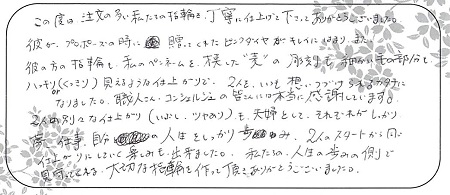 この度は 注文の多い私たちの指輪を、丁寧に仕上げて下さって ありがとうございました。
彼が、プロポーズの時に 贈ってくれた ピンクダイヤがキレイに 、また
彼の方の指輪も、私のペンネームを模した"麦"の彫刻も 細かい毛の部分も
ハッキリ(くっきり)見えるような仕上がりで、2人を、いつも 想いつづけられるカタチに
なりました。職人さん・コンシェルジュの皆さんには本当に感謝しています。
2人の別々な仕上がり(いぶし、ツヤあり)も、夫婦として、それぞれがしっかり
夢、仕事、 の人生をしっかり歩み、2人のスタートから同じ
仕上がりにしていく楽しみも、出来ました。私たちの、人生の歩みの側で
見守ってくれる、大切な指輪を作って頂きありがとうございました。